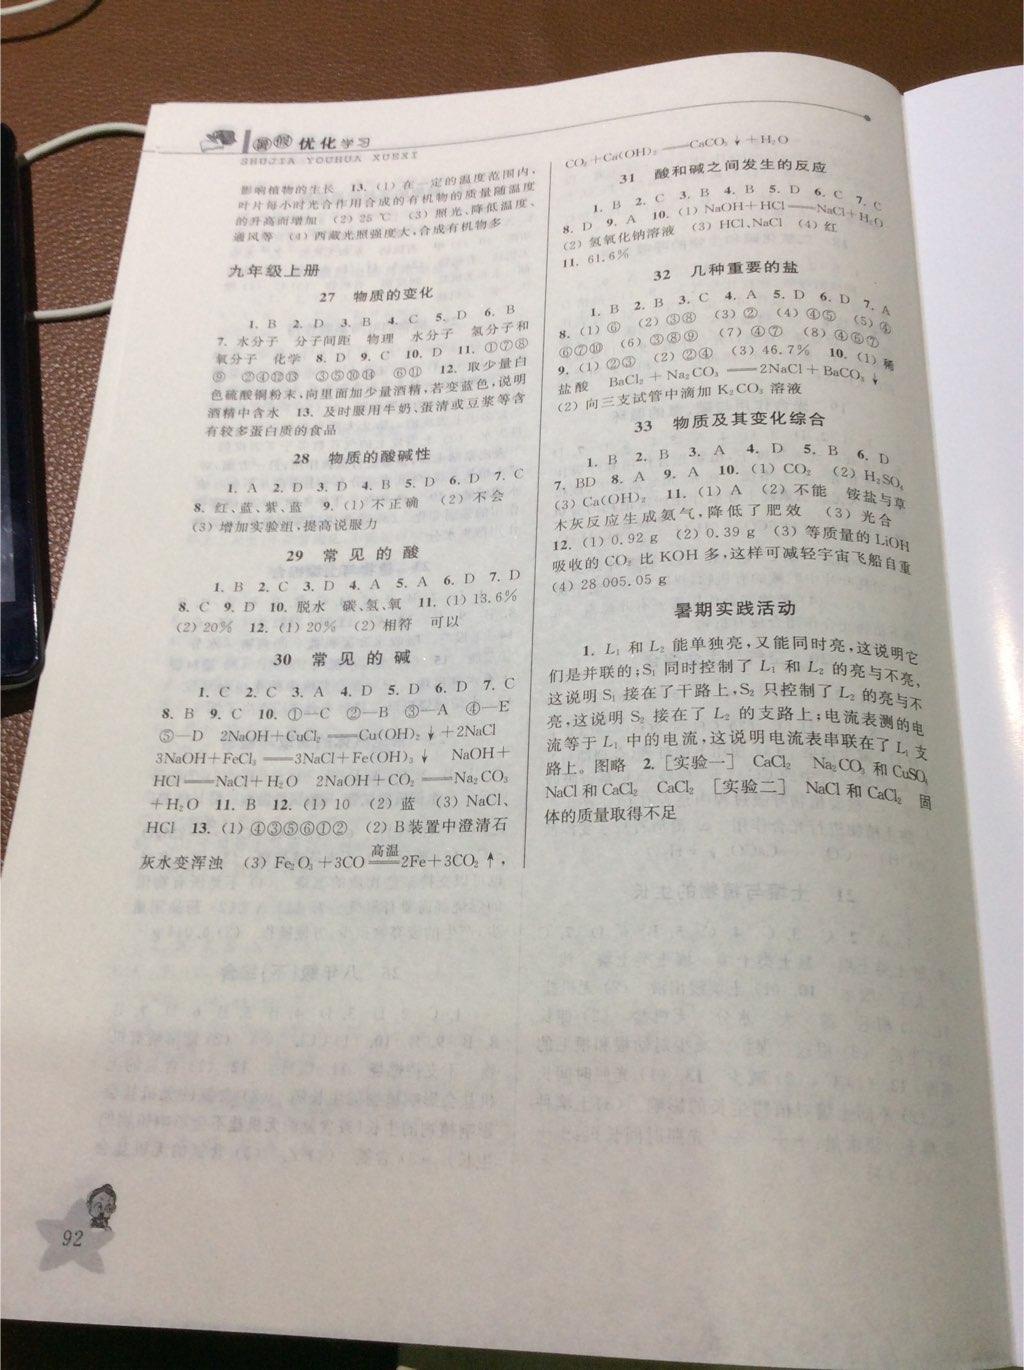 暑假优化学习
SHUJIA YOUHUA XUEXI
影响植物的生长 13. (1) 在一定的温度范围内,
叶片每小时光合作用合成的有机物的质量随温度
的升高而增加 (2) 25 ℃ (3) 照光、降低温度、
通风等 (4) 西藏光照强度大,合成有机物多
九年级上册
27 物质的变化
1. B 2. D 3. B 4. C 5. D 6. B
7. 水分子 分子间距 物理 水分子 氢分子和
氧分子 化学 8. D 9. C 10. D 11. ①⑦⑧
⑨ ②④⑫⑬ ③⑤⑩⑭ ⑥⑪ 12. 取少量白
色硫酸铜粉末,向里面加少量酒精,若变蓝色,说明
酒精中含水 13. 及时服用牛奶、蛋清或豆浆等含
有较多蛋白质的食品
28 物质的酸碱性
1. A 2. D 3. D 4. B 5. D 6. D 7. C
8. 红、蓝、紫、蓝 9. (1) 不正确 (2) 不会
(3) 增加实验组,提高说服力
29 常见的酸
1. B 2. C 3. D 4. A 5. A 6. D 7. D
8. C 9. D 10. 脱水 碳、氢、氧 11. (1) 13.6%
(2) 20% 12. (1) 20% (2) 相符 可以
30 常见的碱
1. C 2. C 3. A 4. D 5. D 6. D 7. C
8. B 9. C 10. ①—C ②—B ③—A ④—E
⑤—D 2NaOH+CuCl₂══Cu(OH)₂↓+2NaCl
3NaOH+FeCl₃══3NaCl+Fe(OH)₃↓ NaOH+
HCl══NaCl+H₂O 2NaOH+CO₂══Na₂CO₃
+H₂O 11. B 12. (1) 10 (2) 蓝 (3) NaCl、
HCl 13. (1) ④③⑤⑥①② (2) B装置中澄清石
灰水变浑浊 (3) Fe₂O₃+3CO═高温═2Fe+3CO₂↑,
CO₂+Ca(OH)₂══CaCO₃↓+H₂O
31 酸和碱之间发生的反应
1. B 2. C 3. B 4. B 5. D 6. C 7. C
8. D 9. A 10. (1) NaOH+HCl══NaCl+H₂O
(2) 氢氧化钠溶液 (3) HCl、NaCl (4) 红
11. 61.6%
32 几种重要的盐
1. B 2. B 3. C 4. A 5. D 6. D 7. A
8. (1) ⑥ (2) ③⑧ (3) ② (4) ④⑤ (5) ④
⑥⑦⑩ (6) ③⑧⑨ (7) ④⑦ (8) ④⑥⑦
9. (1) ②③ (2) ②④ (3) 46.7% 10. (1) 稀
盐酸 BaCl₂+Na₂CO₃══2NaCl+BaCO₃↓
(2) 向三支试管中滴加 K₂CO₃ 溶液
33 物质及其变化综合
1. B 2. B 3. A 4. D 5. B 6. D
7. BD 8. A 9. A 10. (1) CO₂ (2) H₂SO₄
(3) Ca(OH)₂ 11. (1) A (2) 不能 铵盐与草
木灰反应生成氨气,降低了肥效 (3) 光合
12. (1) 0.92 g (2) 0.39 g (3) 等质量的 LiOH
吸收的 CO₂ 比 KOH 多,这样可减轻宇宙飞船自重
(4) 28 005.05 g
暑期实践活动
1. L₁ 和 L₂ 能单独亮,又能同时亮,这说明它
们是并联的;S₁ 同时控制了 L₁ 和 L₂ 的亮与不亮,
这说明 S₁ 接在了干路上,S₂ 只控制了 L₂ 的亮与不
亮,这说明 S₂ 接在了 L₂ 的支路上;电流表测的电
流等于 L₁ 中的电流,这说明电流表串联在了 L₁ 支
路上。图略 2. [实验一] CaCl₂ Na₂CO₃ 和 CuSO₄
NaCl 和 CaCl₂ CaCl₂ [实验二] NaCl 和 CaCl₂ 固
体的质量取得不足
92